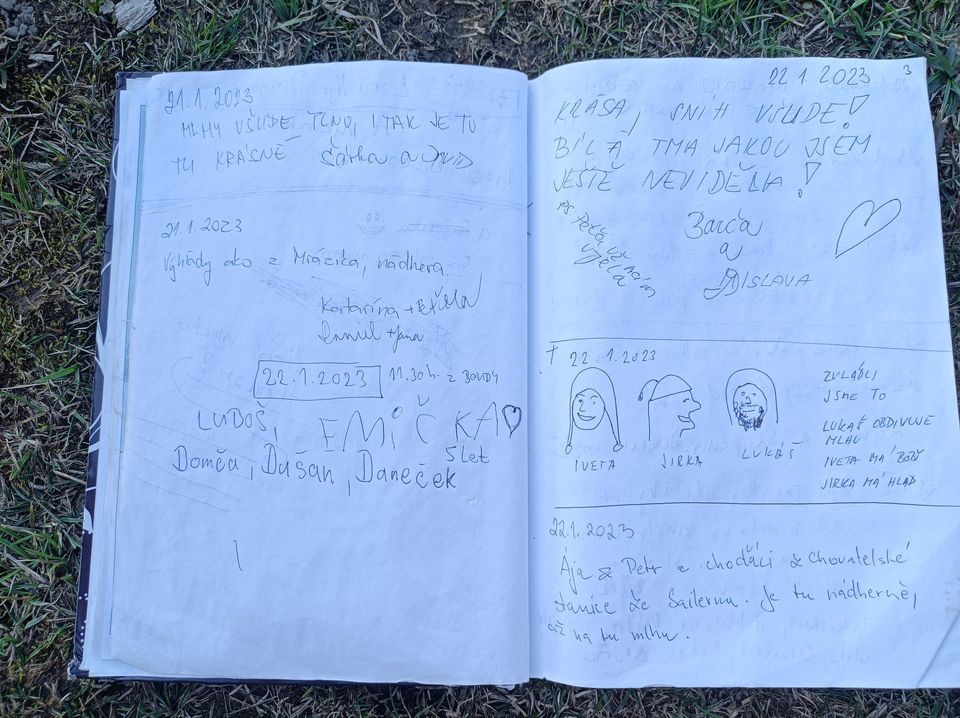 21.1.2023
MLHY VŠUDE, TEMNO, I TAK JE TO
TU KRÁSNÉ Šárka a DAVID
21.1.2023
Výhľady ako z Mrázika, nádhera.
Katarína +
Daniel + Jana
22.1.2023 11.30h. z BOUDY
LUDOŠ, EMIČKA
5 let
Domča, Dušan, Daneček
22.1 2023 3
KRÁSA, SNÍH VŠUDE!
BÍLÁ TMA JAKOU JSEM
JEŠTĚ NEVIDĚLA!
Barča
a
DISLAVA
22.1.2023
IVETA JIRKA LUKÁŠ
ZVLÁDLI
JSME TO
LUKÁŠ OBDIVUJE
MLHU
IVETA MÁ BOBY
JIRKA MÁ HLAD
22.1.2023
Ája & Petr a choďáci z Chovatelské
stanice Ze Sailernu. Je tu nádherně,
až na tu mlhu.